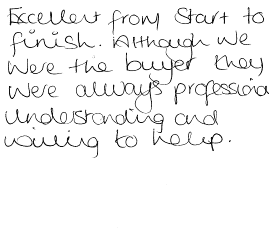 Excellent from start to
finish. Although we
were the buyer they
were always professional
understanding and
willing to help.